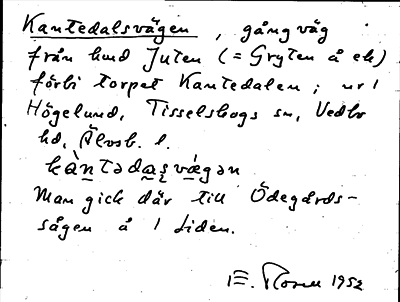 Kantedalsvägen, gångväg
från hmd Juten (= Gryten å ek)
förbi torpet Kantedalen; nr 1
Högelund, Tisselskogs sn, Vedbo
hd, Älvsb. l.
kàntədaʂvægən
Man gick där till Ödegårds-
sågen å 1 Liden.
1952